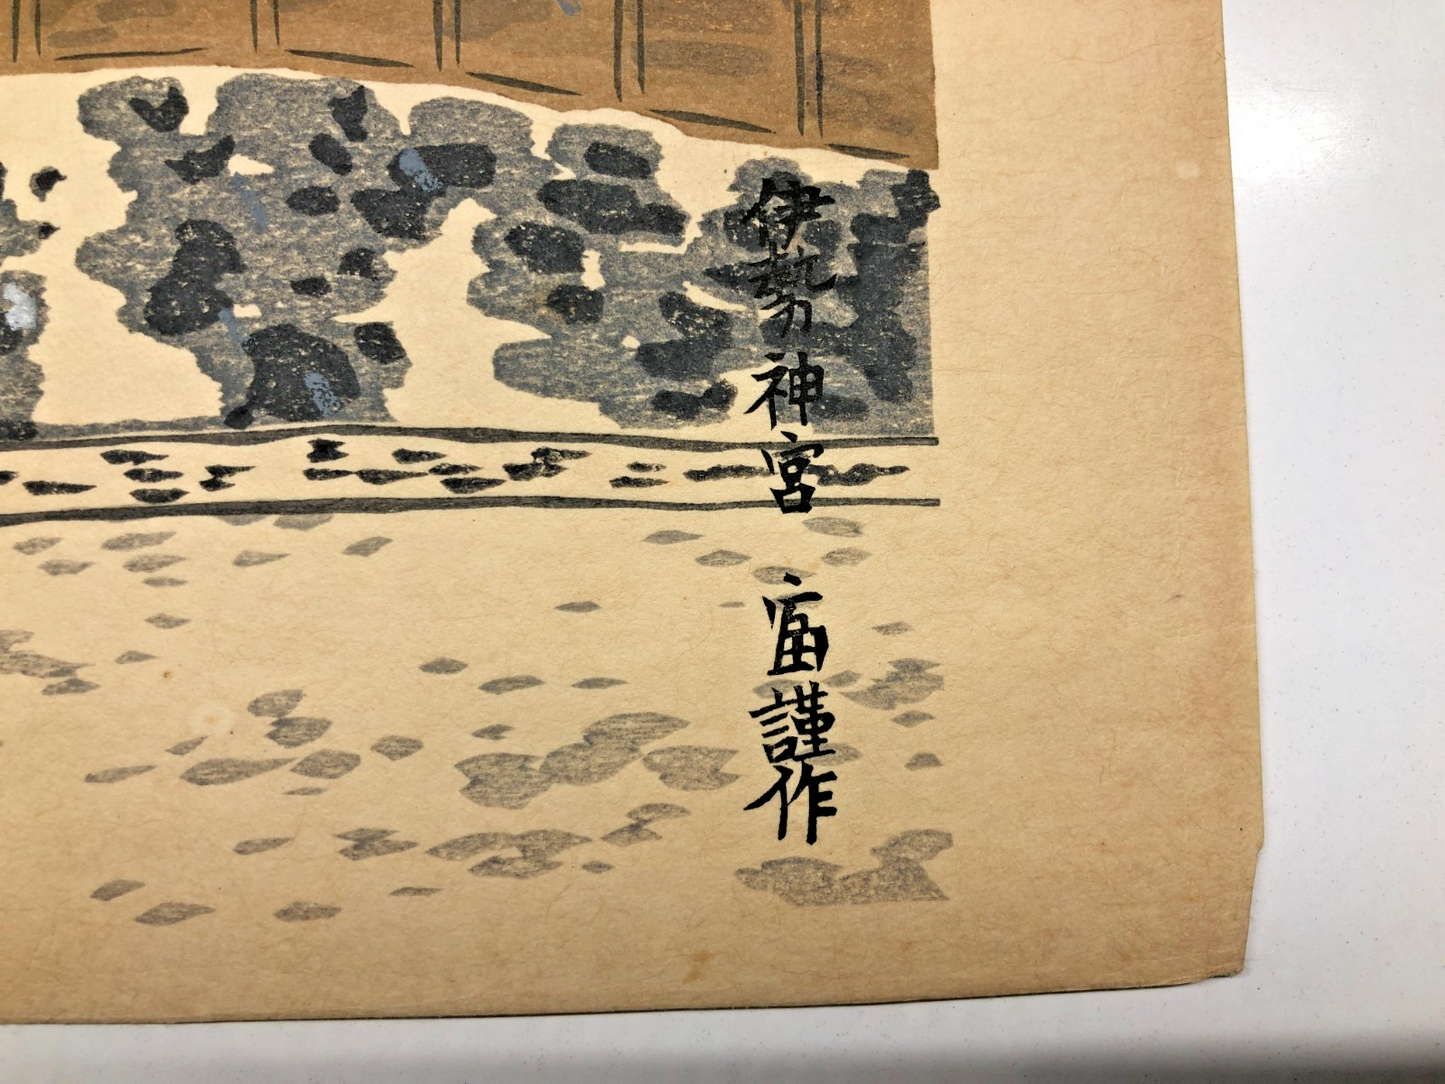 伊勢神宮 富謹作